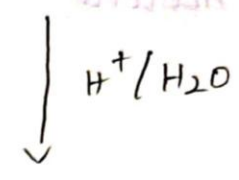 H⁺/H₂O